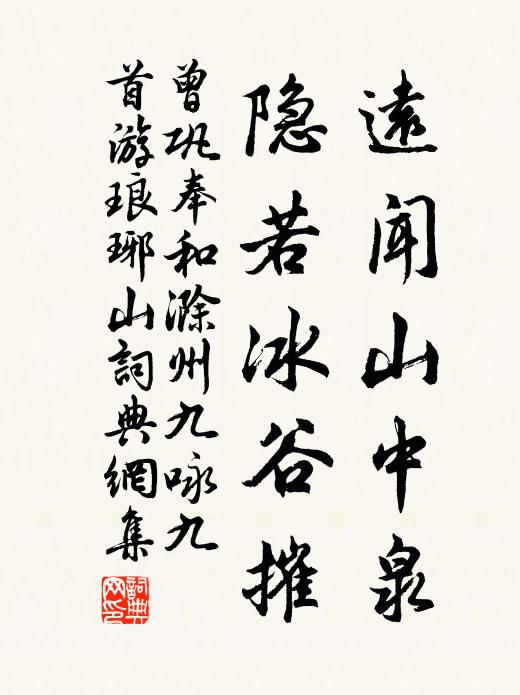 遠聞山中泉
隐若冰谷摧
曾巩奉和滁州九咏九
首游琅琊山詞典網集
詞典网印